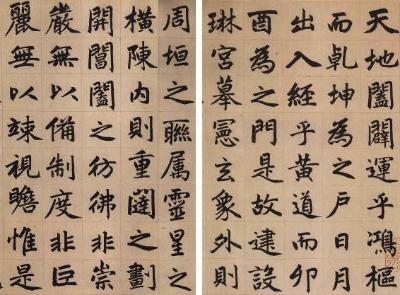 天地闔闢運乎鴻樞
而乾坤為之戶日月
出入經乎黃道而卯
酉為之門是故建設
琳宮摹憲玄象外則
周垣之聯属靈星之
橫陳内則重闥之劃
開閶闔之彷彿非崇
嚴無以備制度非巨
麗無以竦視瞻惟是